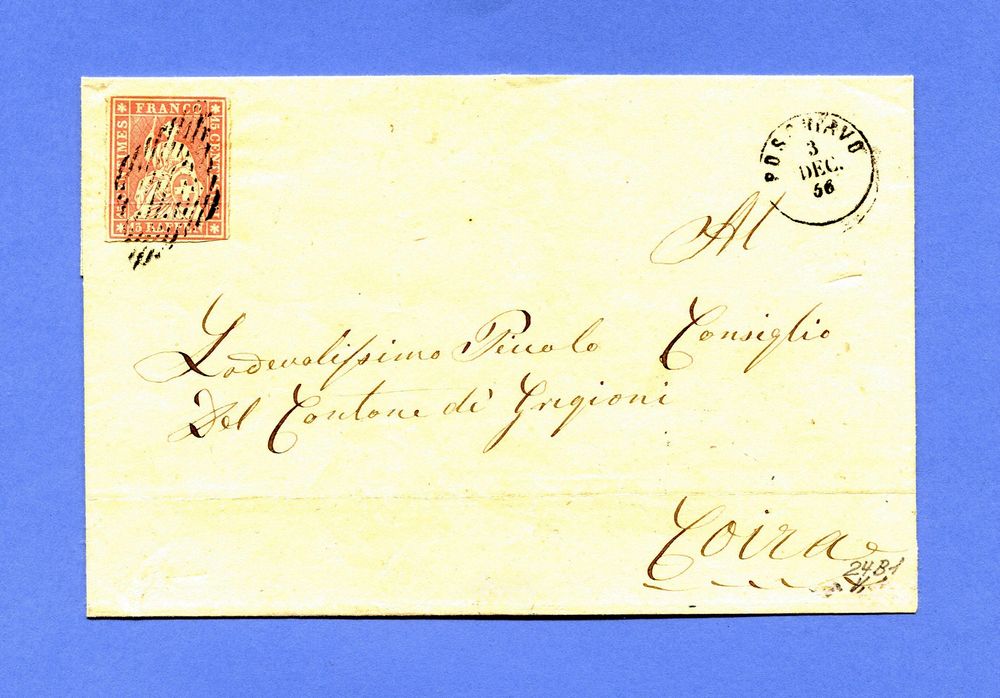 FRANCO
15 CEN
MES
15 RAPPEN
POSCHIAVO
3
DEC.
56
Al
Lodevolissimo Piccolo Consiglio
Del Cantone di Grigioni
Coira
24B1